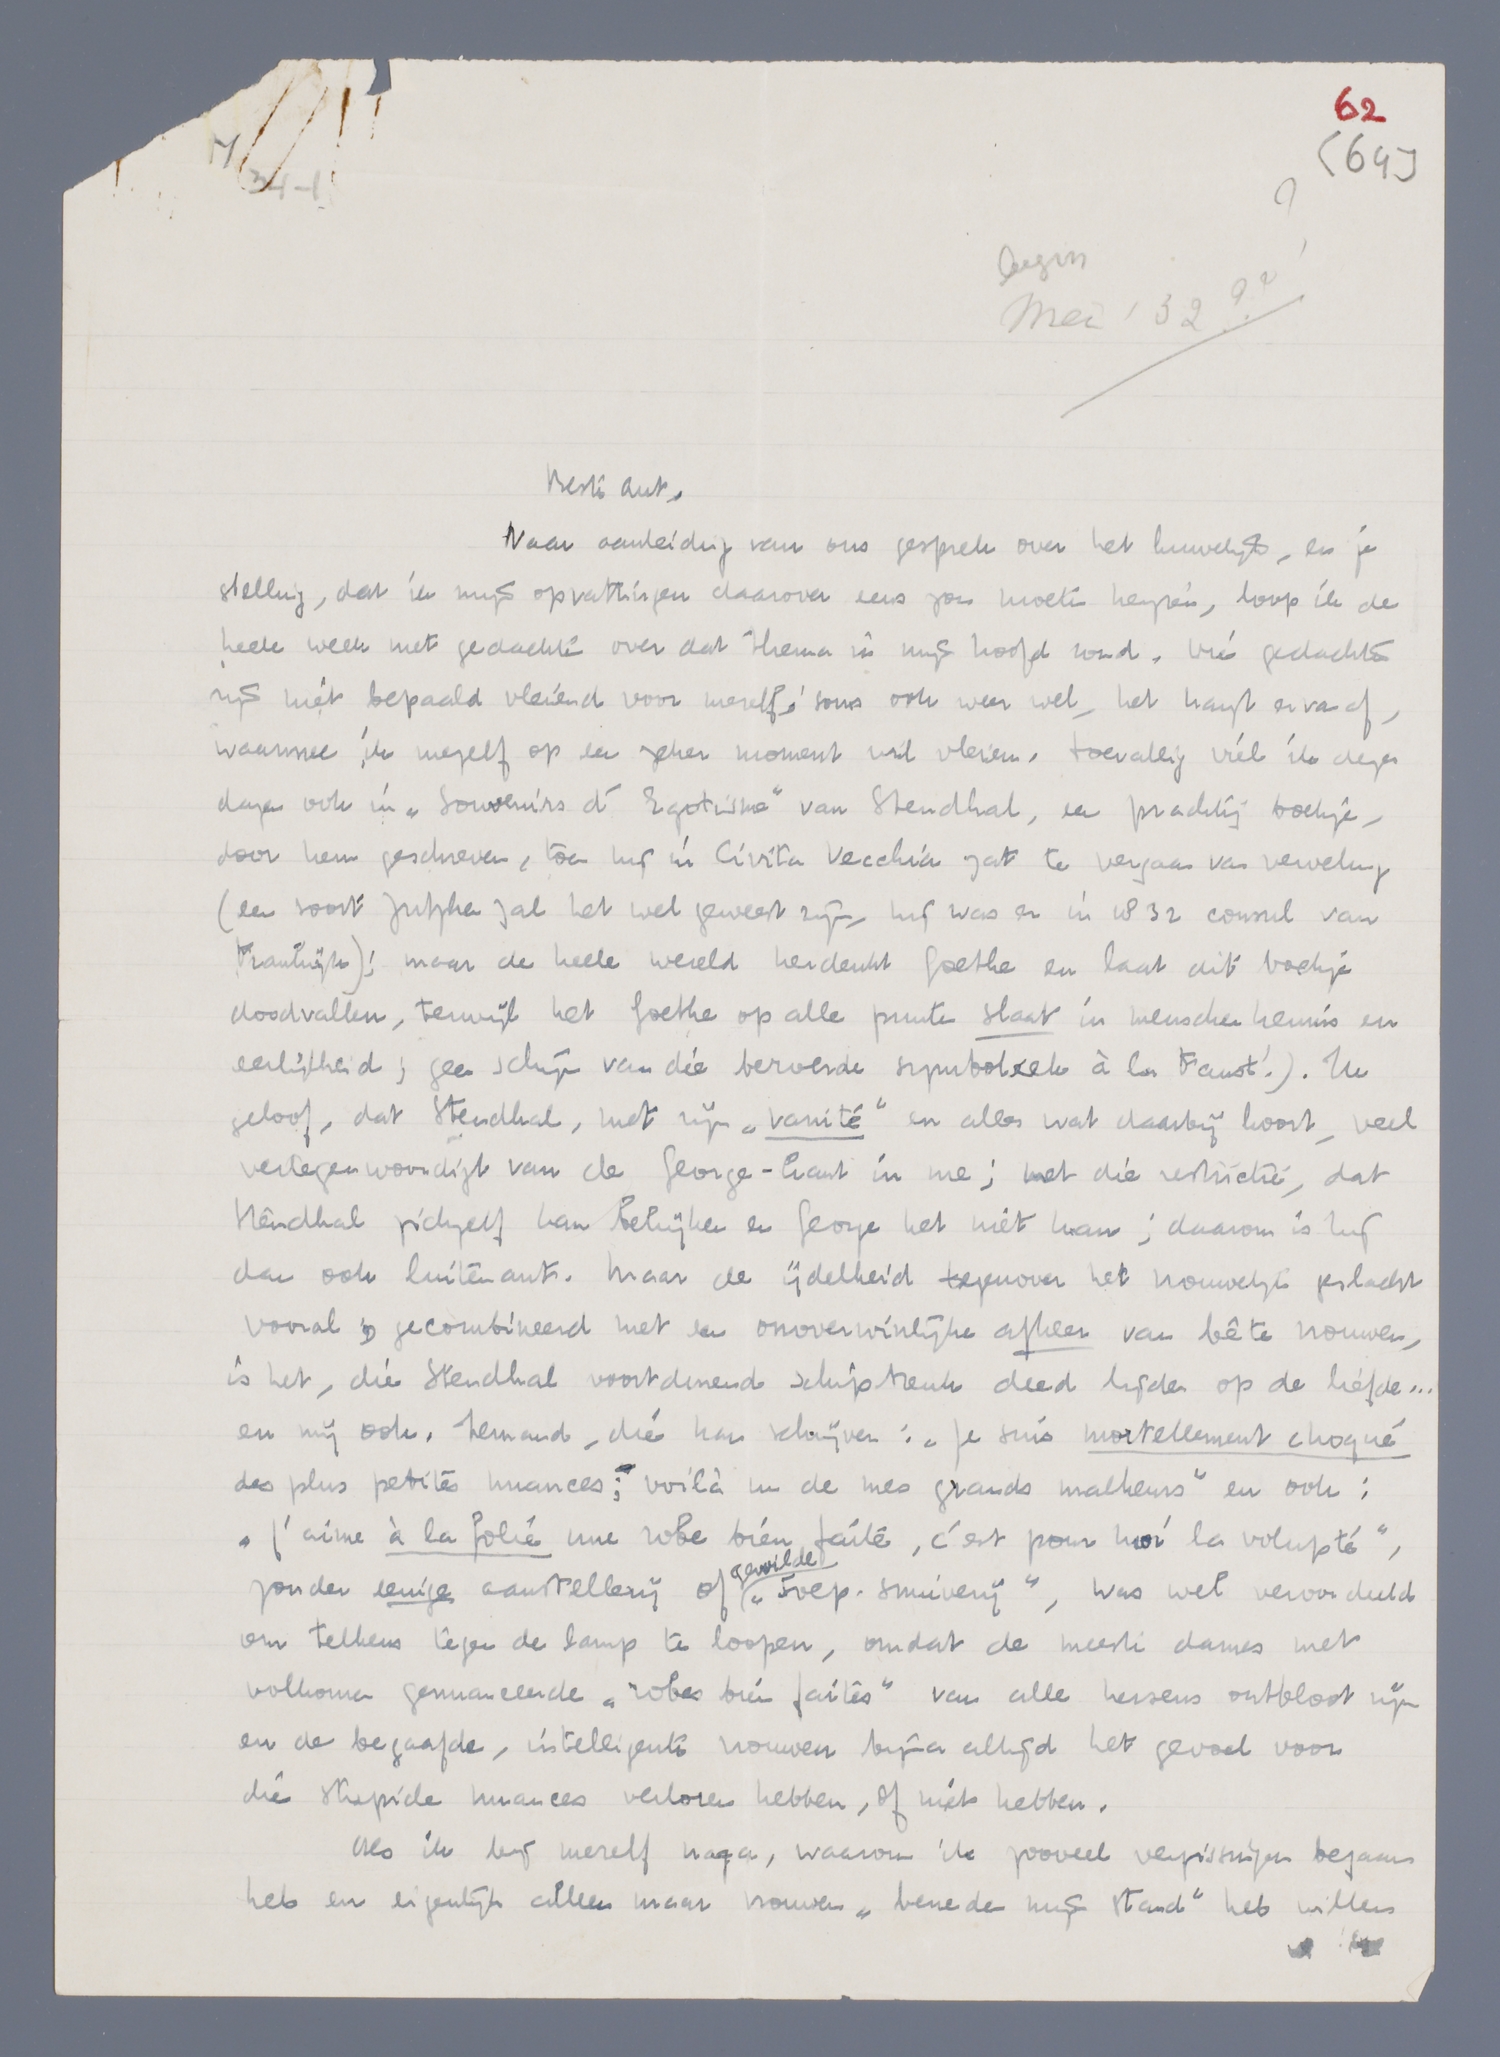 62
(64)
?
begin
Mei '32 ??
Beste Ant,
Naar aanleiding van ons gesprek over het huwelijk, en je
stelling, dat ik mijn opvattingen daarover eens zou moeten herzien, loop ik de
heele week met gedachten over dat thema in mijn hoofd rond. Die gedachten
zijn niet bepaald vleiend voor mezelf; soms ook weer wel, het hangt ervan af,
waarmee ik mezelf op een zeker moment wil vleien. Toevallig viel ik dezer
dagen ook in „Souvenirs d'Egotisme" van Stendhal, een prachtig boekje,
door hem geschreven, toen hij in Civita Vecchia zat te vergaan van verveling
(een soort Zutphen zal het wel geweest zijn, hij was er in 1832 consul van
Frankrijk); maar de heele wereld herdenkt Goethe en laat dit boekje
doodvallen, terwijl het Goethe op alle punten slaat in menschenkennis en
eerlijkheid; geen schijn van die beroerde symboliek à la Faust!). Ik
geloof, dat Stendhal, met zijn „vanité" en alles wat daarbij hoort, veel
vertegenwoordigt van de George-kant in me; met die restrictie, dat
Stendhal zichzelf kan bekijken en George het niet kan; daarom is hij
dan ook luitenant. Maar de ijdelheid tegenover het vrouwelijk geslacht
vooral, gecombineerd met een onoverwinlijke afkeer van bête vrouwen,
is het, die Stendhal voortdurend schipbreuk deed lijden op de liefde...
en mij ook. Iemand, die kan schrijven: „Je suis mortellement choqué
des plus petites nuances; voilà un de mes grands malheurs" en ook:
„J'aime à la folie une robe bien faite, c'est pour moi la volupté",
zonder eenige aanstellerij of gewilde „Soep-snuiverij", was wel veroordeeld
om telkens tegen de lamp te loopen, omdat de meeste dames met
volkomen genuanceerde „robes bien faites" van alle hersens ontbloot zijn
en de begaafde, intelligente vrouwen bijna altijd het gevoel voor
die stupide nuances verloren hebben, of niet hebben.
Als ik bij mezelf naga, waarom ik zooveel vergissingen begaan
heb en eigenlijk alleen maar vrouwen „beneden mijn stand" heb willen